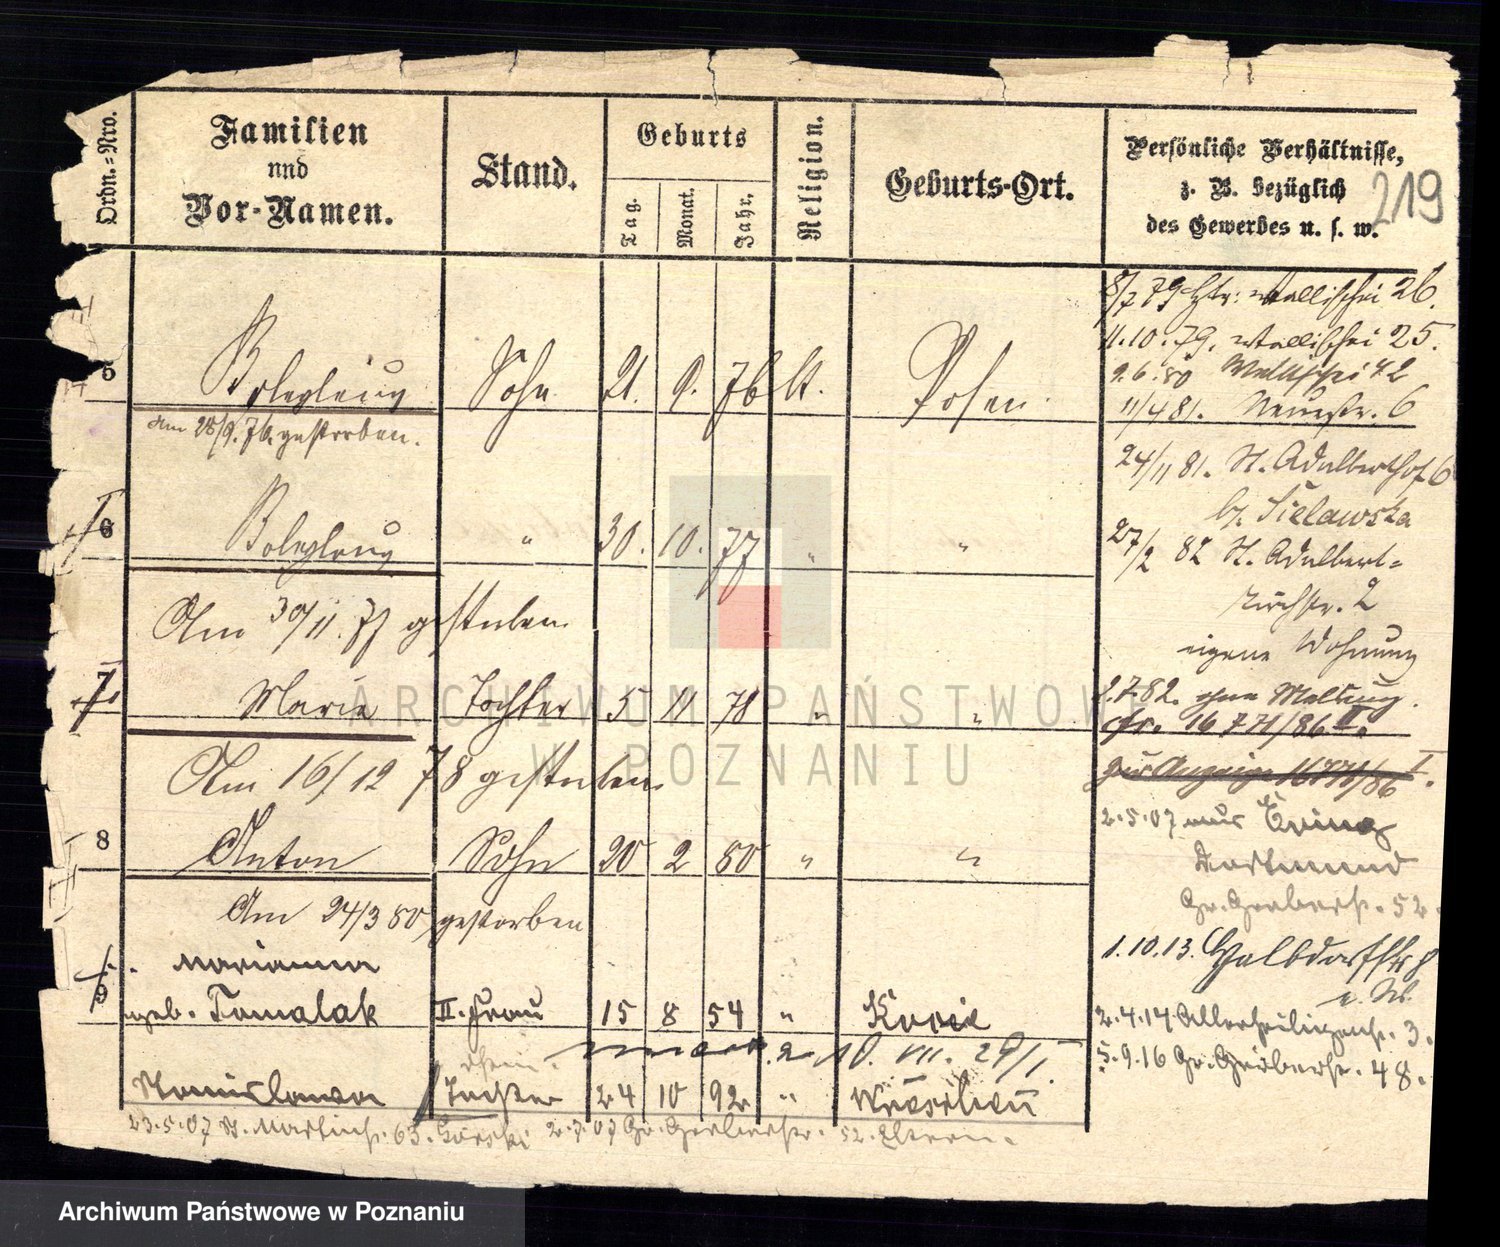 Ordn.=Nro.
Familien
und
Vor-Namen.
Stand.
Geburts
Tag.
Monat.
Jahr.
Religion.
Geburts-Ort.
Persönliche Verhältnisse,
z. B. bezüglich
des Gewerbes u. s. w.
219
8/7 79 Wallischei 26.
11.10.79. Wallischei 25.
9.6.80 Wallischei 42
11/4 81. Neuestr. 6
5 Boleslaus Sohn 21. 9. 76 kt. Posen
Am 28/9. 76 gestorben.
24/11 81. St. Adalberthof 6
b. Sielawska
6 Boleslaus " 30. 10. 77 " "
27/2 82 St. Adalbert=
kirchstr. 2
Am 30/11. 77 gestorben
eigene Wohnung
7 Marie Tochter 5 11 78 " "
.7.82. ohne Meldung.
cfr. 16771/86 II.
Am 16/12 78 gestorben.
zur Anzeige 16771/86 I.
8 Anton Sohn 20 2 80 " "
2.5.07 aus Eving
Dortmund
Am 24/3 80 gestorben
Gr. Gerberstr. 52.
1.10.13. Halbdorffstr 8
9 Marianna
geb. Tomalak II. Frau 15 8 54 "
2.4.14 Allerheiligenstr. 3.
10. VII. 29/I.
5.9.16 Gr. Gerberstr. 48.
Stanislawa Tochter 24 10 92 "
23.5.07 St. Martinstr. 63. Gorski 2.7.07 Gr. Gerberstr. 52. Eltern.
ARCHIWUM PAŃSTWOWE
W POZNANIU
Archiwum Państwowe w Poznaniu